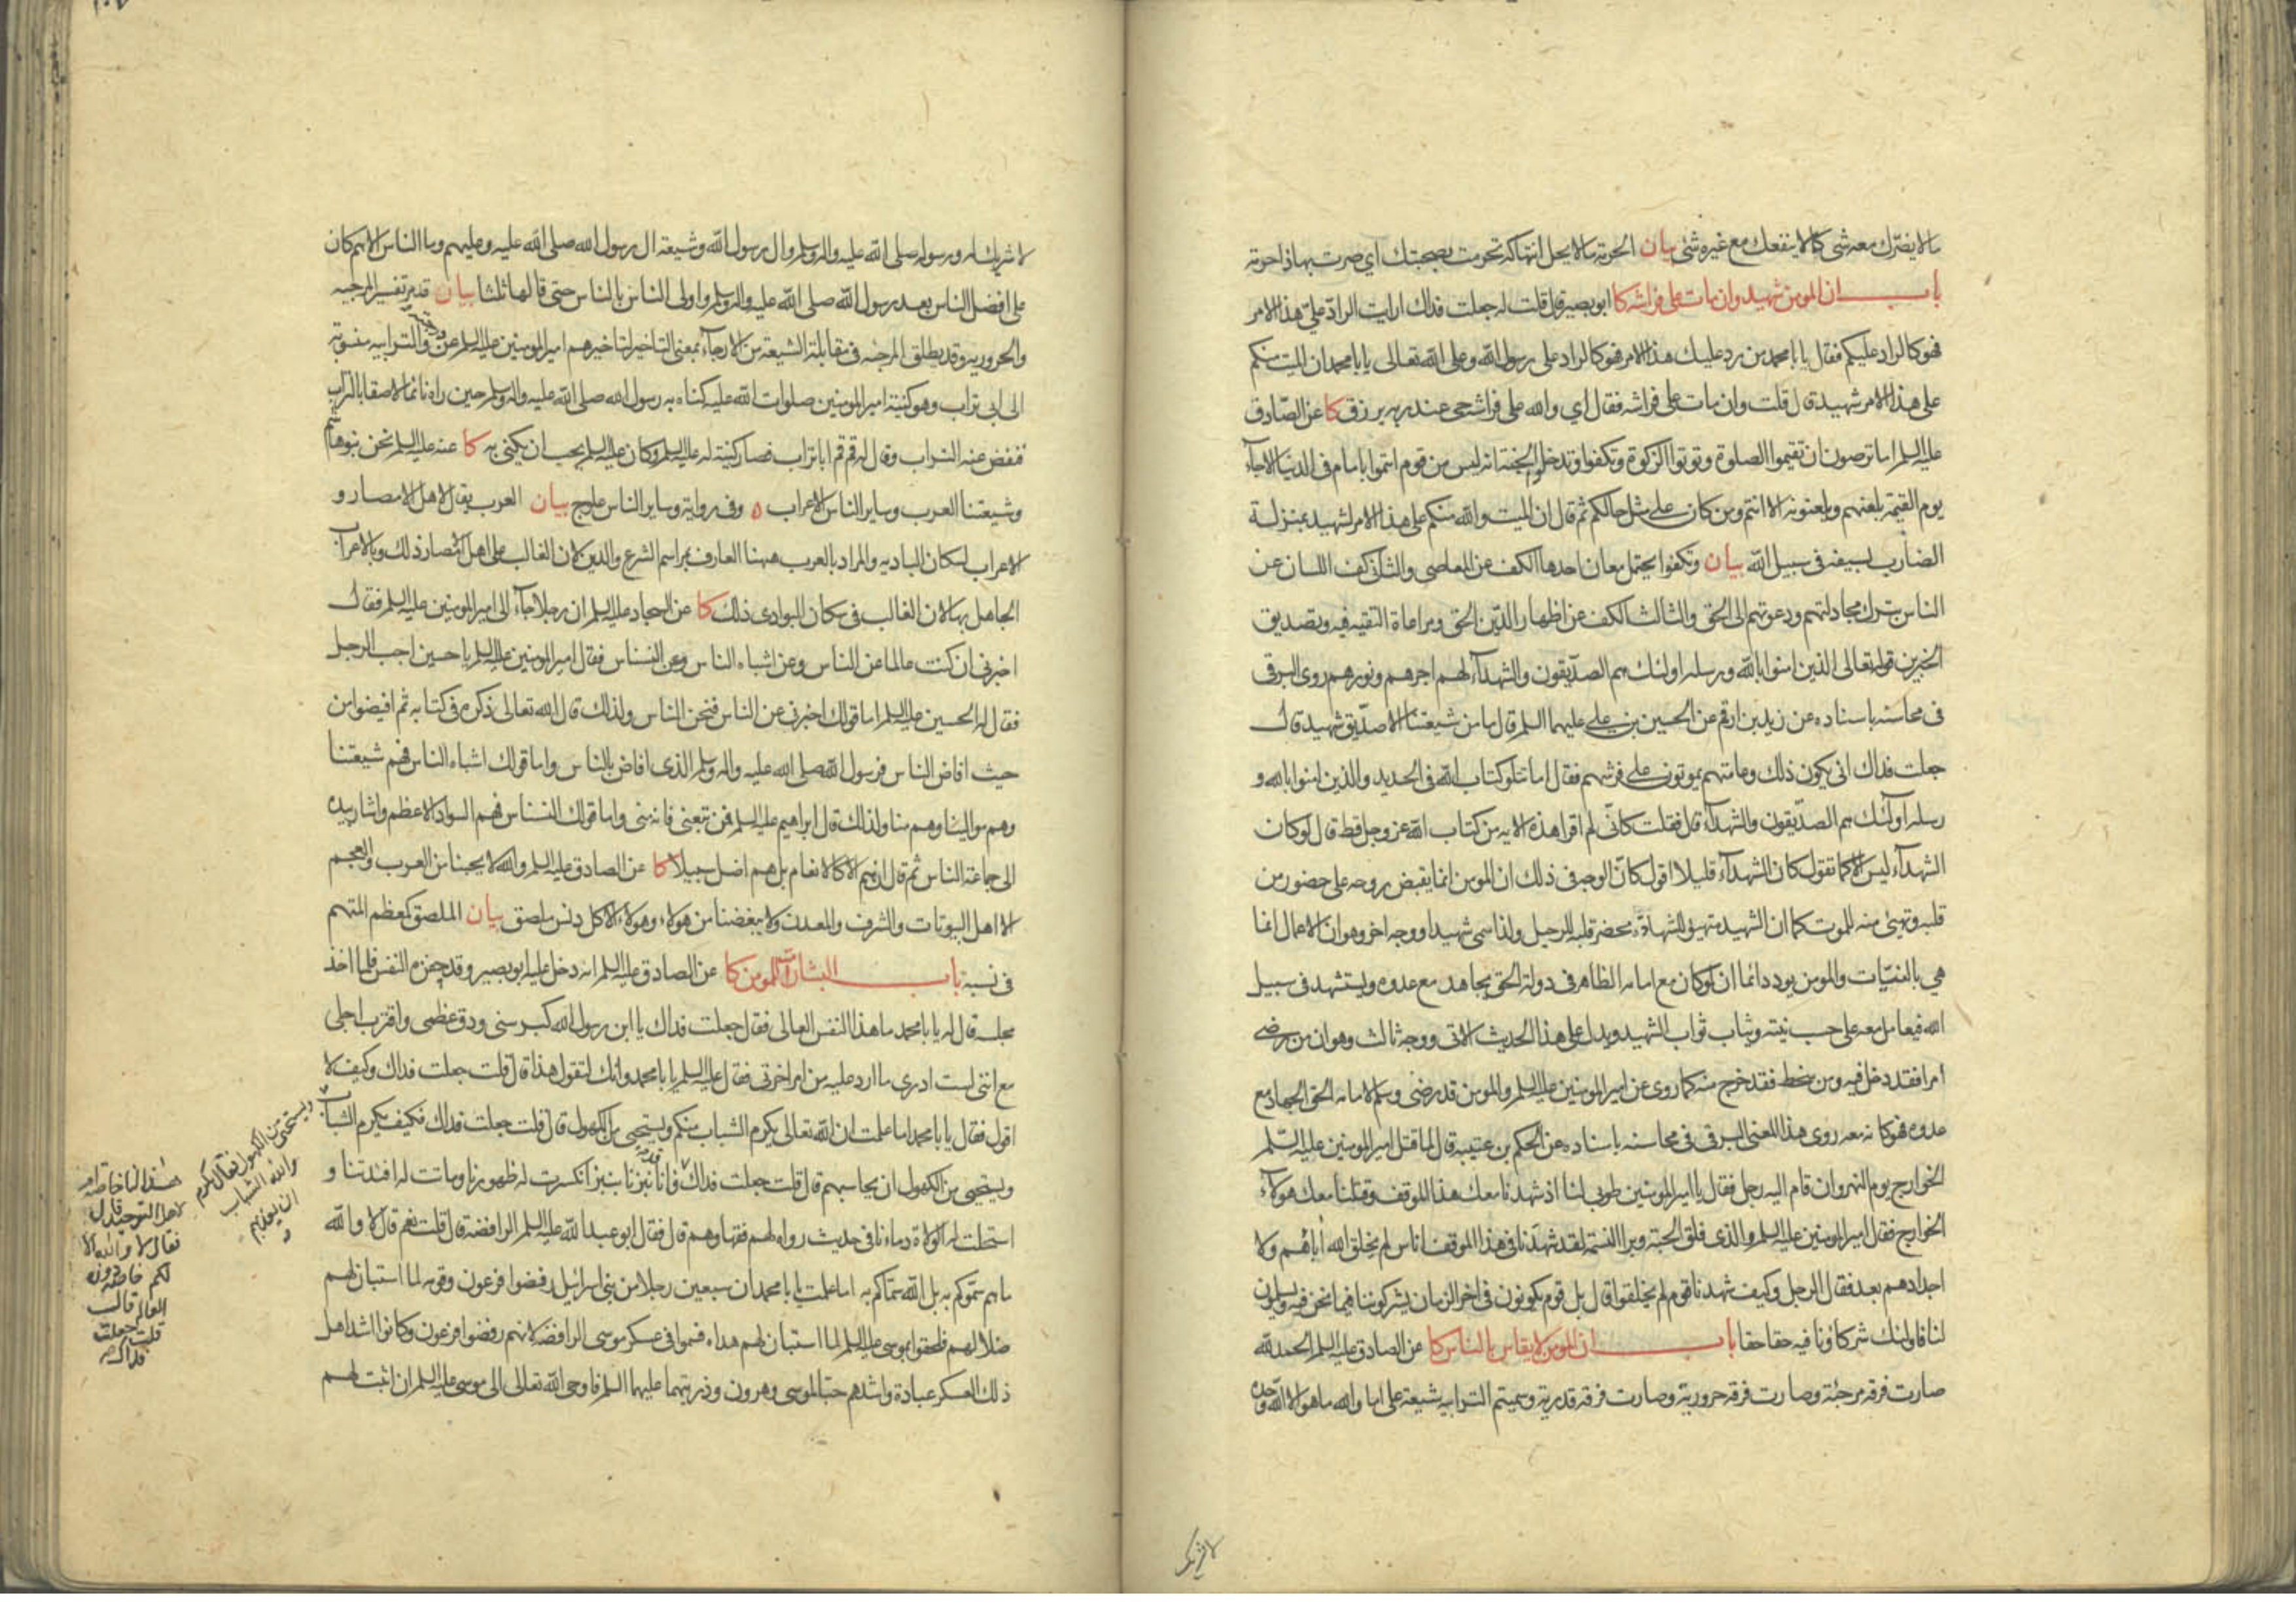 ما لا يضرّك معه شئ كما لا ينفعك مع غيره شئ بيان الحرمة ما لا يحل انتهاكه تحرمت بصحبتك اي صرت بها ذا حرمة
باب ان المومن شهيد وان مات على فراشه كا ابو بصير قال قلت له جعلت فداك ارايت الراد علىّ هذا الامر
فهو كالراد عليكم فقال يا با محمد من رد عليك هذا الامر فهو كالراد على رسول الله وعلى الله تعالى يا با محمد ان الميت منكم
على هذا الامر شهيد قال قلت وان مات على فراشه فقال اي والله على فراشه حي عند ربه يرزق كا عن الصّادق
عليه السلم اما ترضون ان تقيموا الصلوة وتوتوا الزكوة وتكفوا وتدخلوا الجنة انه ليس من قوم ائتموا بامام في الدنيا الا جاء
يوم القيمة يلعنهم ويلعنونه الا انتم ومن كان على مثل حالكم ثم قال ان الميت والله منكم على هذا الامر لشهيد بمنزلة
الضارب بسيفه في سبيل الله بيان وتكفوا يحتمل معان احدها الكف عن المعاصي والثاني كف اللسان عن
الناس بترك مجادلتهم ودعوتهم الى الحق والثالث الكف عن اظهار الدّين الحق ومراعاة التقيه فيه وتصديق
الخبرين قوله تعالى الذين امنوا بالله ورسله اولئك هم الصدّيقون والشهدآء لهم اجرهم ونورهم روى البرقي
في محاسنه باسناده عن زيد بن ارقم عن الحسين بن علي عليهما السلم قال ما من شيعتنا الا صدّيق شهيد قال
جعلت فداك انى يكون ذلك وعامتهم يموتون على فرشهم فقال اما تتلو كتاب الله في الحديد والذين امنوا بالله و
رسله اولئك هم الصدّيقون والشهدآء قال فقلت كانّي لم اقرا هذه الايه من كتاب الله عز وجل قط قال لو كان
الشهدآء ليس الا كما تقول كان الشهدآء قليلا اقول كانّ الوجه في ذلك ان المومن انما يقبض روحه على حضور من
قلبه وتهيئ منه للموت كما ان الشهيد متهيئ للشهادة محضر قلبه للرحيل ولذا سمي شهيدا ووجه اخر وهو ان الاعمال انما
هي بالنيّات والمومن يود دائما ان لو كان مع امامه الظاهر في دولة الحق يجاهد مع عدوه ويستشهد في سبيل
الله فيعامل معه على حسب نيته ويثاب ثواب الشهيد ويدل على هذا الحديث الاتي ووجه ثالث وهو ان من رضي
امرا فقد دخل فيه ومن سخط فقد خرج منه كما روى عن امير المومنين عليه السلم والمومن قد رضي وسلم لامامه الحق الجهاد مع
عدوه فهو كانه معه روى هذا المعنى البرقي في محاسنه باسناده عن الحكم بن عتيبة قال لما قتل امير المومنين عليه السّلم
الخوارج يوم النهروان قام اليه رجل فقال يا امير المومنين طوبى لنا اذ شهدنا معك هذا الموقف وقتلنا معك هولآء
الخوارج فقال امير المومنين عليه السلم والذي فلق الحبة وبرا النسمة لقد شهدنا في هذا الموقف اناس لم يخلق الله آباءهم ولا
اجدادهم بعد فقال الرجل وكيف شهدنا قوم لم يخلقوا قال بل قوم يكونون في اخر الزمان يشركوننا فيما نحن فيه ويسلمون
لنا فاولئك شركاؤنا فيه حقا حقا باب ان المومن لا يقاس بالناس كا عن الصادق عليه السلم الحمد لله
صارت فرقه مرجئة وصارت فرقه حرورية وصارت فرقه قدرية وسميتم الترابيه شيعة على اما والله ما هو الا الله وحده
لا شريك
لا شريك له ورسوله صلى الله عليه واله وسلم وال رسول الله وشيعة ال رسول الله صلى الله عليه وعليهم وما الناس الا هم كان
على افضل الناس بعد رسول الله صلى الله عليه واله وسلم واولى الناس بالناس حتى قالها ثلثا بيان قد مر تفسير المرجيه
والحروريه وقد يطلق المرجئه في مقابلة الشيعة من الارجآء بمعنى التاخير لتاخيرهم امير المومنين عليه السلم عن درجته والترابيه منسوبة
الى ابي تراب وهو كنية امير المومنين صلوات الله عليه كناه به رسول الله صلى الله عليه واله وسلم حين راه نائما لاصقا بالتراب
فنفض عنه التراب وقال له قم قم ابا تراب فصار كنية له عليه السلم وكان عليه السلم يحب ان يكنى به كا عنه عليه السلم نحن بنو هاشم
وشيعتنا العرب وساير الناس الاعراب ه وفي رواية وساير الناس علوج بيان العرب يقال لاهل الامصار و
الاعراب لسكان الباديه والمراد بالعرب ههنا العارف بمراسم الشرع والدين لان الغالب على اهل الامصار ذلك وبالاعراب
الجاهل بها لان الغالب في سكان البوادي ذلك كا عن السجاد عليه السلم ان رجلا جاء الى امير المومنين عليه السلم فقال
اخبرني ان كنت عالما عن الناس وعن اشباه الناس وعن النسناس فقال امير المومنين عليه السلم يا حسين اجب الرجل
فقال له الحسين عليه السلم اما قولك اخبرني عن الناس فنحن الناس ولذلك قال الله تعالى ذكره في كتابه ثم افيضوا من
حيث افاض الناس فرسول الله صلى الله عليه واله وسلم الذي افاض بالناس واما قولك اشباه الناس فهم شيعتنا
وهم موالينا وهم منا ولذلك قال ابراهيم عليه السلم فمن تبعني فانه مني واما قولك النسناس فهم السواد الاعظم واشار بيده
الى جماعة الناس ثم قال ان هم الا كالانعام بل هم اضل سبيلا كا عن الصادق عليه السلم والله لا يحبنا من العرب والعجم
الا اهل البيوتات والشرف والمعدن ولا يبغضنا من هولاء وهولاء الا كل دنس ملصق بيان الملصق كمعظم المتهم
في نسبه باب البشارات للمومن كا عن الصادق عليه السلم انه دخل عليه ابو بصير وقد حفزه النفس فلما اخذ
مجلسه قال له يا با محمد ما هذا النفس العالى فقال جعلت فداك يا ابن رسول الله كبر سني ودق عظمي واقترب اجلي
مع انني لست ادري ما ارد عليه من امر اخرتي فقال عليه السلم يا با محمد وانك لتقول هذا قال قلت جعلت فداك وكيف لا
اقول فقال يا با محمد اما علمت ان الله تعالى يكرم الشباب منكم ويستحيى من الكهول قال قلت جعلت فداك فكيف يكرم الشباب
ويستحيي من الكهول فقال يكرم
والله الشباب
ان يعذبهم
و
ويستحيي من الكهول ان يحاسبهم قال قلت جعلت فداك فانا نبزنا نبزا انكسرت له ظهورنا وماتت له افئدتنا و
هذا لنا خاصة ام
لاهل التوحيد قال
فقال لا والله الا
لكم خاصة دون
العالم قال
قلت جعلت
فداك
استحلت له الولاة دماءنا في حديث رواه لهم فقهاوهم قال فقال ابو عبد الله عليه السلم الرافضة قال قلت نعم قال لا والله
ما هم سمّوكم به بل الله سمّاكم به اما علمت يا با محمد ان سبعين رجلا من بني اسرائيل رفضوا فرعون وقومه لما استبان لهم
ضلالهم فلحقوا بموسى عليه السلم لما استبان لهم هداه فسموا في عسكر موسى الرافضة لانهم رفضوا فرعون وكانوا اشد اهل
ذلك العسكر عبادة واشدهم حبا لموسى وهرون وذريتهما عليهما السلم فاوحى الله تعالى الى موسى عليه السلم ان اثبت لهم